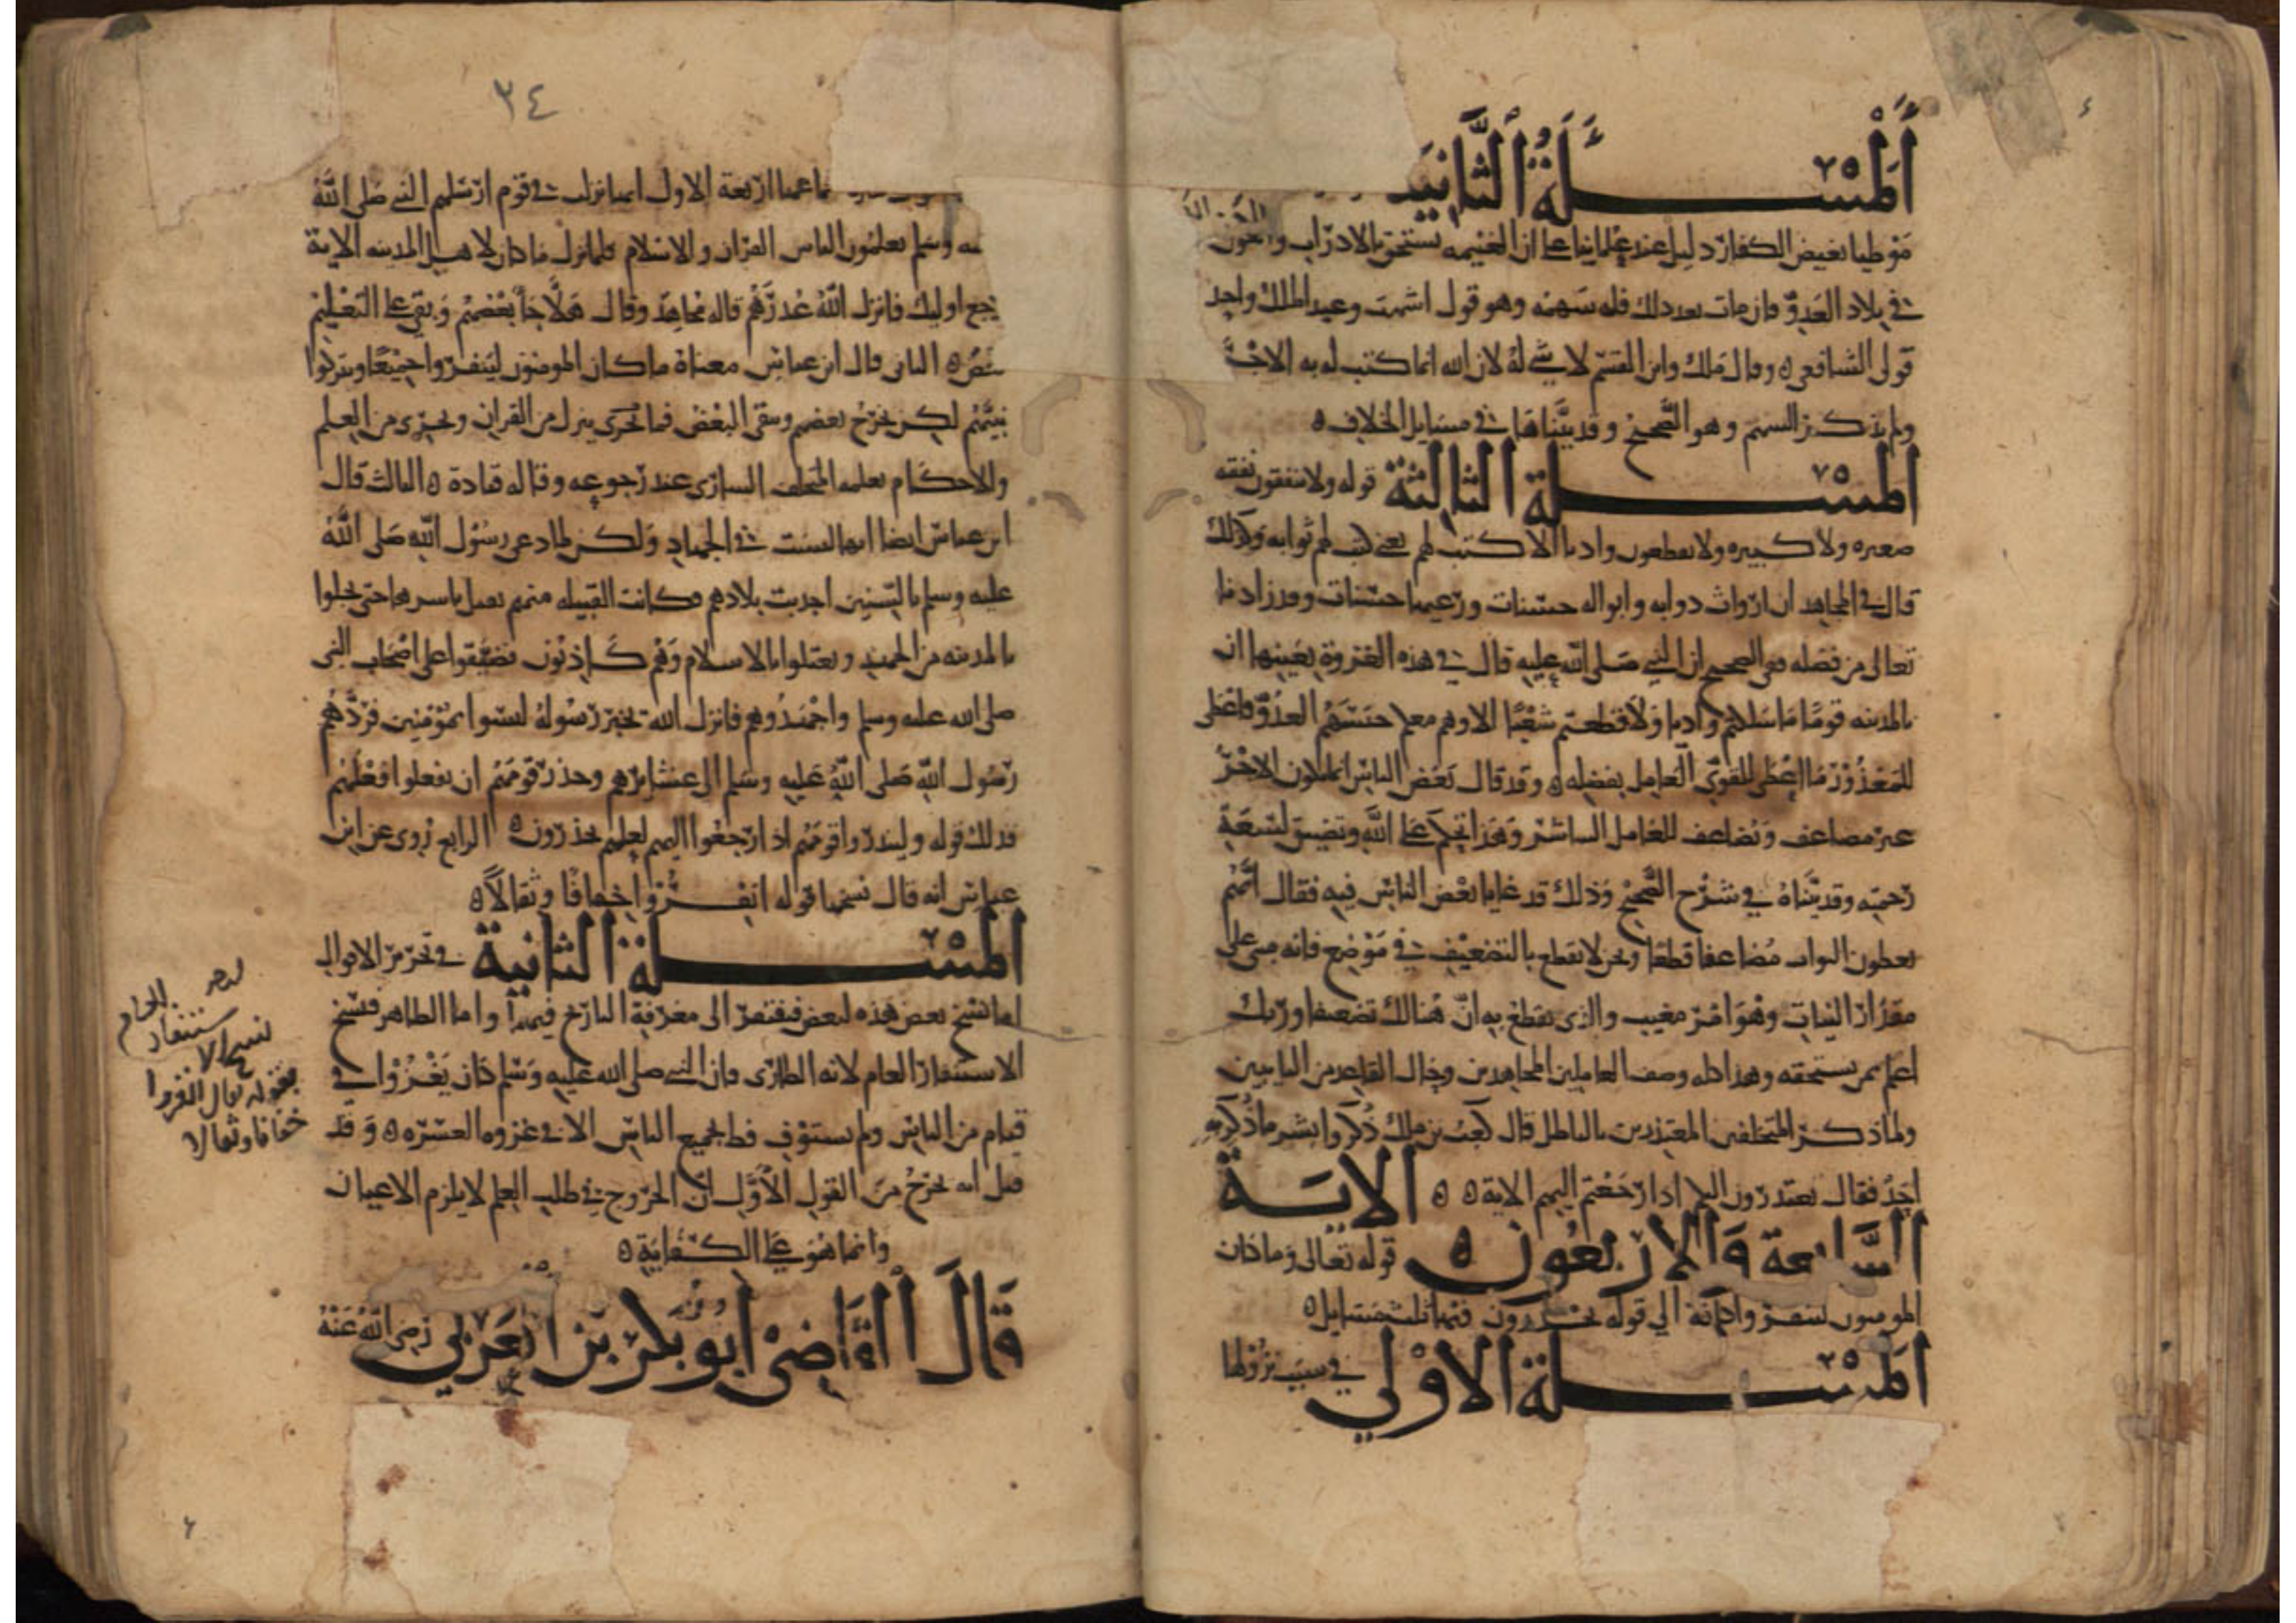 المسئلة الثانية
موطيا يغيض الكفار دليل عند علمائنا على ان الغنيمه تستحق بالادراب والكون
في بلاد العدو فان مات بعد ذلك فله سهمه وهو قول اشهب وعبد الملك واحد
قولي الشافعي ٥ وقال ملك وابن القسم لا شي له لان الله انما كتب له به الاجر
ولم يذكر السهم وهو الصحيح وقد بيناها في مسايل الخلاف ٥
المسئلة الثالثة قوله ولا ينفقون نفقه
صغيره ولا كبيره ولا يقطعون واديا الا كتب لهم يعني كتب لهم ثوابه وكذلك
قال في المجاهد ان ارواث دوابه وابواله حسنات ورعيها حسنات وقد زادنا
تعالى من فضله ففي الصحيح ان النبي صلى الله عليه قال في هذه الغزوة بعينها ان
بالمدينه قوما ما سلكتم واديا ولا قطعتم شعبا الا وهم معكم حبسهم العذر فاعطى
للمعذور ما اعطى للقوي العامل بفضله ٥ وقد قال بعض الناس انما يكون الاجر
غير مضاعف ويضاعف للعامل المباشر وهذا تحكم على الله وتضييق لسعة
رحمته وقد بيناه في شرح الصحيح وذلك قد عاب بعض الناس فيه فقال انهم
يعطون الثواب مضاعفا قطعا ونحن لا نقطع بالتضعيف في موضع فانه مبني على
مقدار النيات وهو امر مغيب والذي يقطع به ان هنالك تضعيفا وربك
اعلم بمن يستحقه وهذا كله وصف العاملين المجاهدين وحال القاعدين التايبين
ولما ذكر المتخلفين المعتذرين بالباطل قال كعب بن ملك ذكروا بشر ما ذكر به
احد فقال يعتذرون اليكم اذا رجعتم اليهم الاية ٥ ٥ الاية
السابعة والاربعون ٥ قوله تعالى وما كان
المومنون لينفروا كافة الي قوله يحذرون فيها ثلث مسايل ٥
المسئلة الاولي في سبب نزولها
٢٤
الاول انها نزلت في قوم ارسلهم النبي صلى الله
عليه وسلم يعلمون الناس القران والاسلام فلما نزل ما كان لاهل المدينه الاية
رجع اوليك فانزل الله عذرهم قاله مجاهد وقال هلا جا بعضهم وبقي على التعليم
بعض ٥ الثاني قال ابن عباس معناه ما كان المومنون لينفروا جميعا ويتركوا
نبيهم لكن يخرج بعضهم ويبقى البعض فما يجري ينزل من القران ويجري من العلم
والاحكام يعلمه المتخلف الساري عند رجوعه وقاله قتادة ٥ الثالث قال
ابن عباس ايضا انها ليست في الجهاد ولكن لما دعى رسول الله صلى الله
عليه وسلم بالسنين اجدبت بلادهم فكانت القبيله منهم تقبل باسرها حتى يحلوا
بالمدينه من الجهد ويعتلوا بالاسلام وهم كاذبون فضيقوا على اصحاب النبي
صلى الله عليه وسلم واجهدوهم فانزل الله يخبر رسوله ليسوا بمؤمنين فردهم
رسول الله صلى الله عليه وسلم الى عشايرهم وحذر قومهم ان يفعلوا فعلهم
فذلك قوله ولينذروا قومهم اذا رجعوا اليهم لعلهم يحذرون ٥ الرابع روى عن ابن
عباس انه قال نسخها قوله انفروا خفافا وثقالا ٥
المسئلة الثانية في تحرير الاقوال
اما نسخ بعض هذه لبعض فيفتقر الى معرفة التاريخ فيها واما الظاهر فنسخ
الاستنفار العام لانه الطاري فان النبي صلى الله عليه وسلم كان يغزوا في
فيام من الناس ولم يستوف قط جميع الناس الا في غزوه العسره ٥ وقد
قيل انه يخرج من القول الاول ان الخروج في طلب العلم لا يلزم الاعيان
وانما هو على الكفاية ٥
قال القاضى ابو بكر بن العربي رضى الله عنه
بقوله تعالى انفروا
خفافا وثقالا